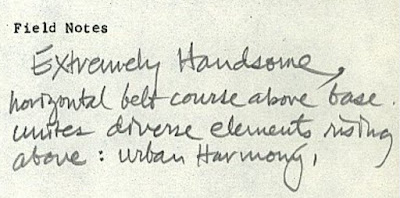 Field Notes
Extremely Handsome,
horizontal belt course above base.
unites diverse elements rising
above : urban Harmony,